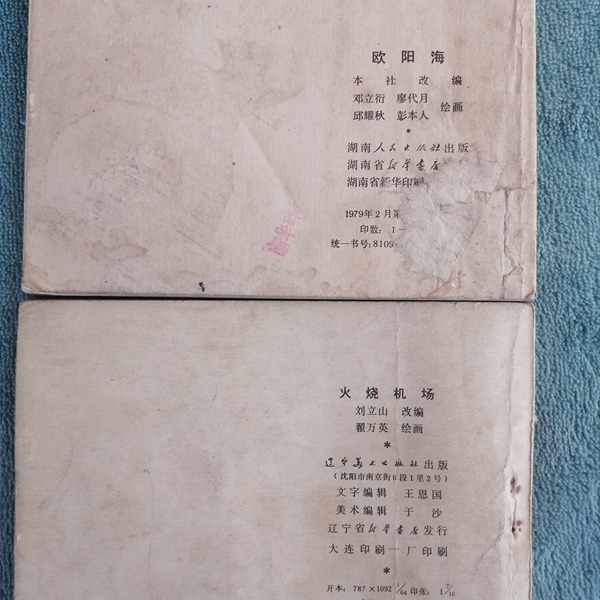 欧阳海
本社改编
邓立衍 廖代月
邱耀秋 彭本人 绘画
*
湖南人民出版社出版
湖南省新华书店
湖南省新华印刷
1979年2月第
印数：1—
统一书号：8109·
火烧机场
刘立山 改编
翟万英 绘画
*
辽宁美术出版社出版
（沈阳市南京街6段1里2号）
文字编辑 王恩国
美术编辑 于沙
辽宁省新华书店发行
大连印刷一厂印刷
*
开本：787×1092 1/64 印张：1 7/16